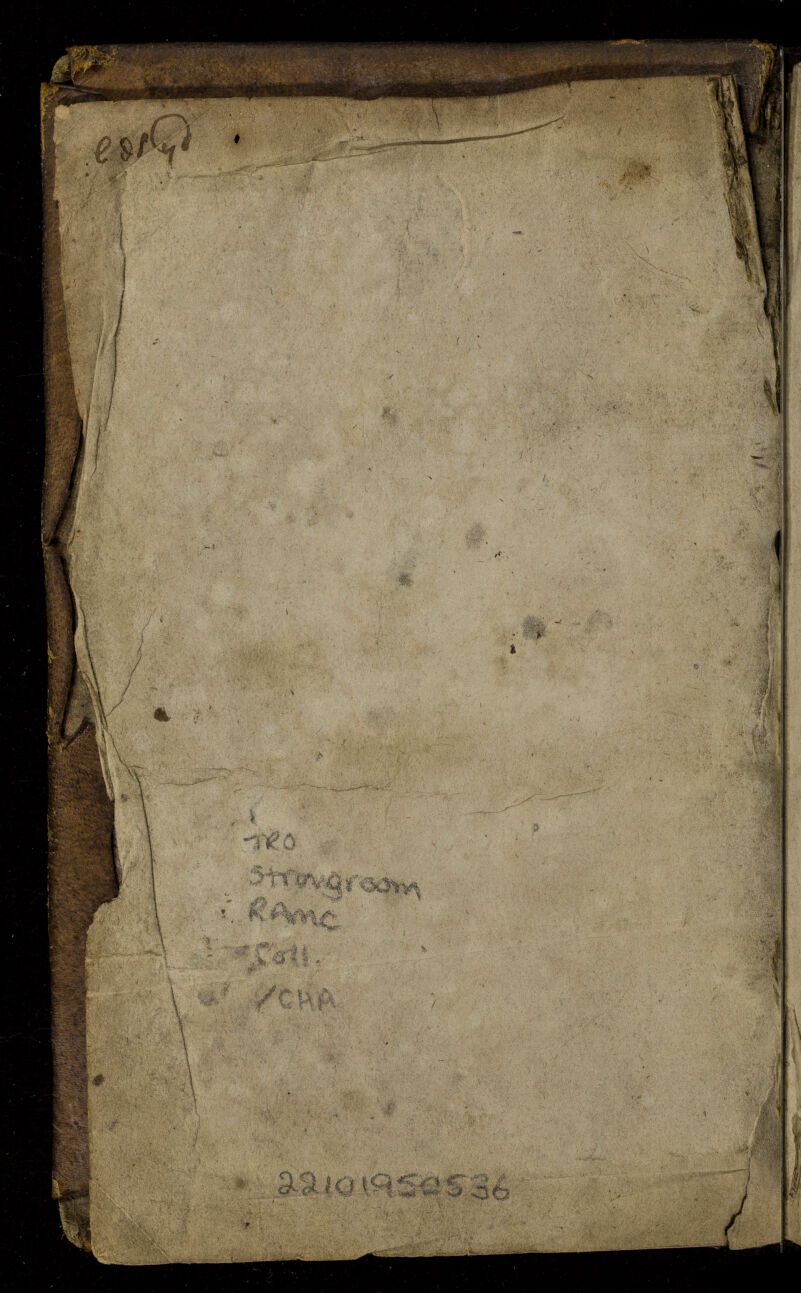 TRO
Strongroom
RAMC
Coll.
/CHA
22101950536